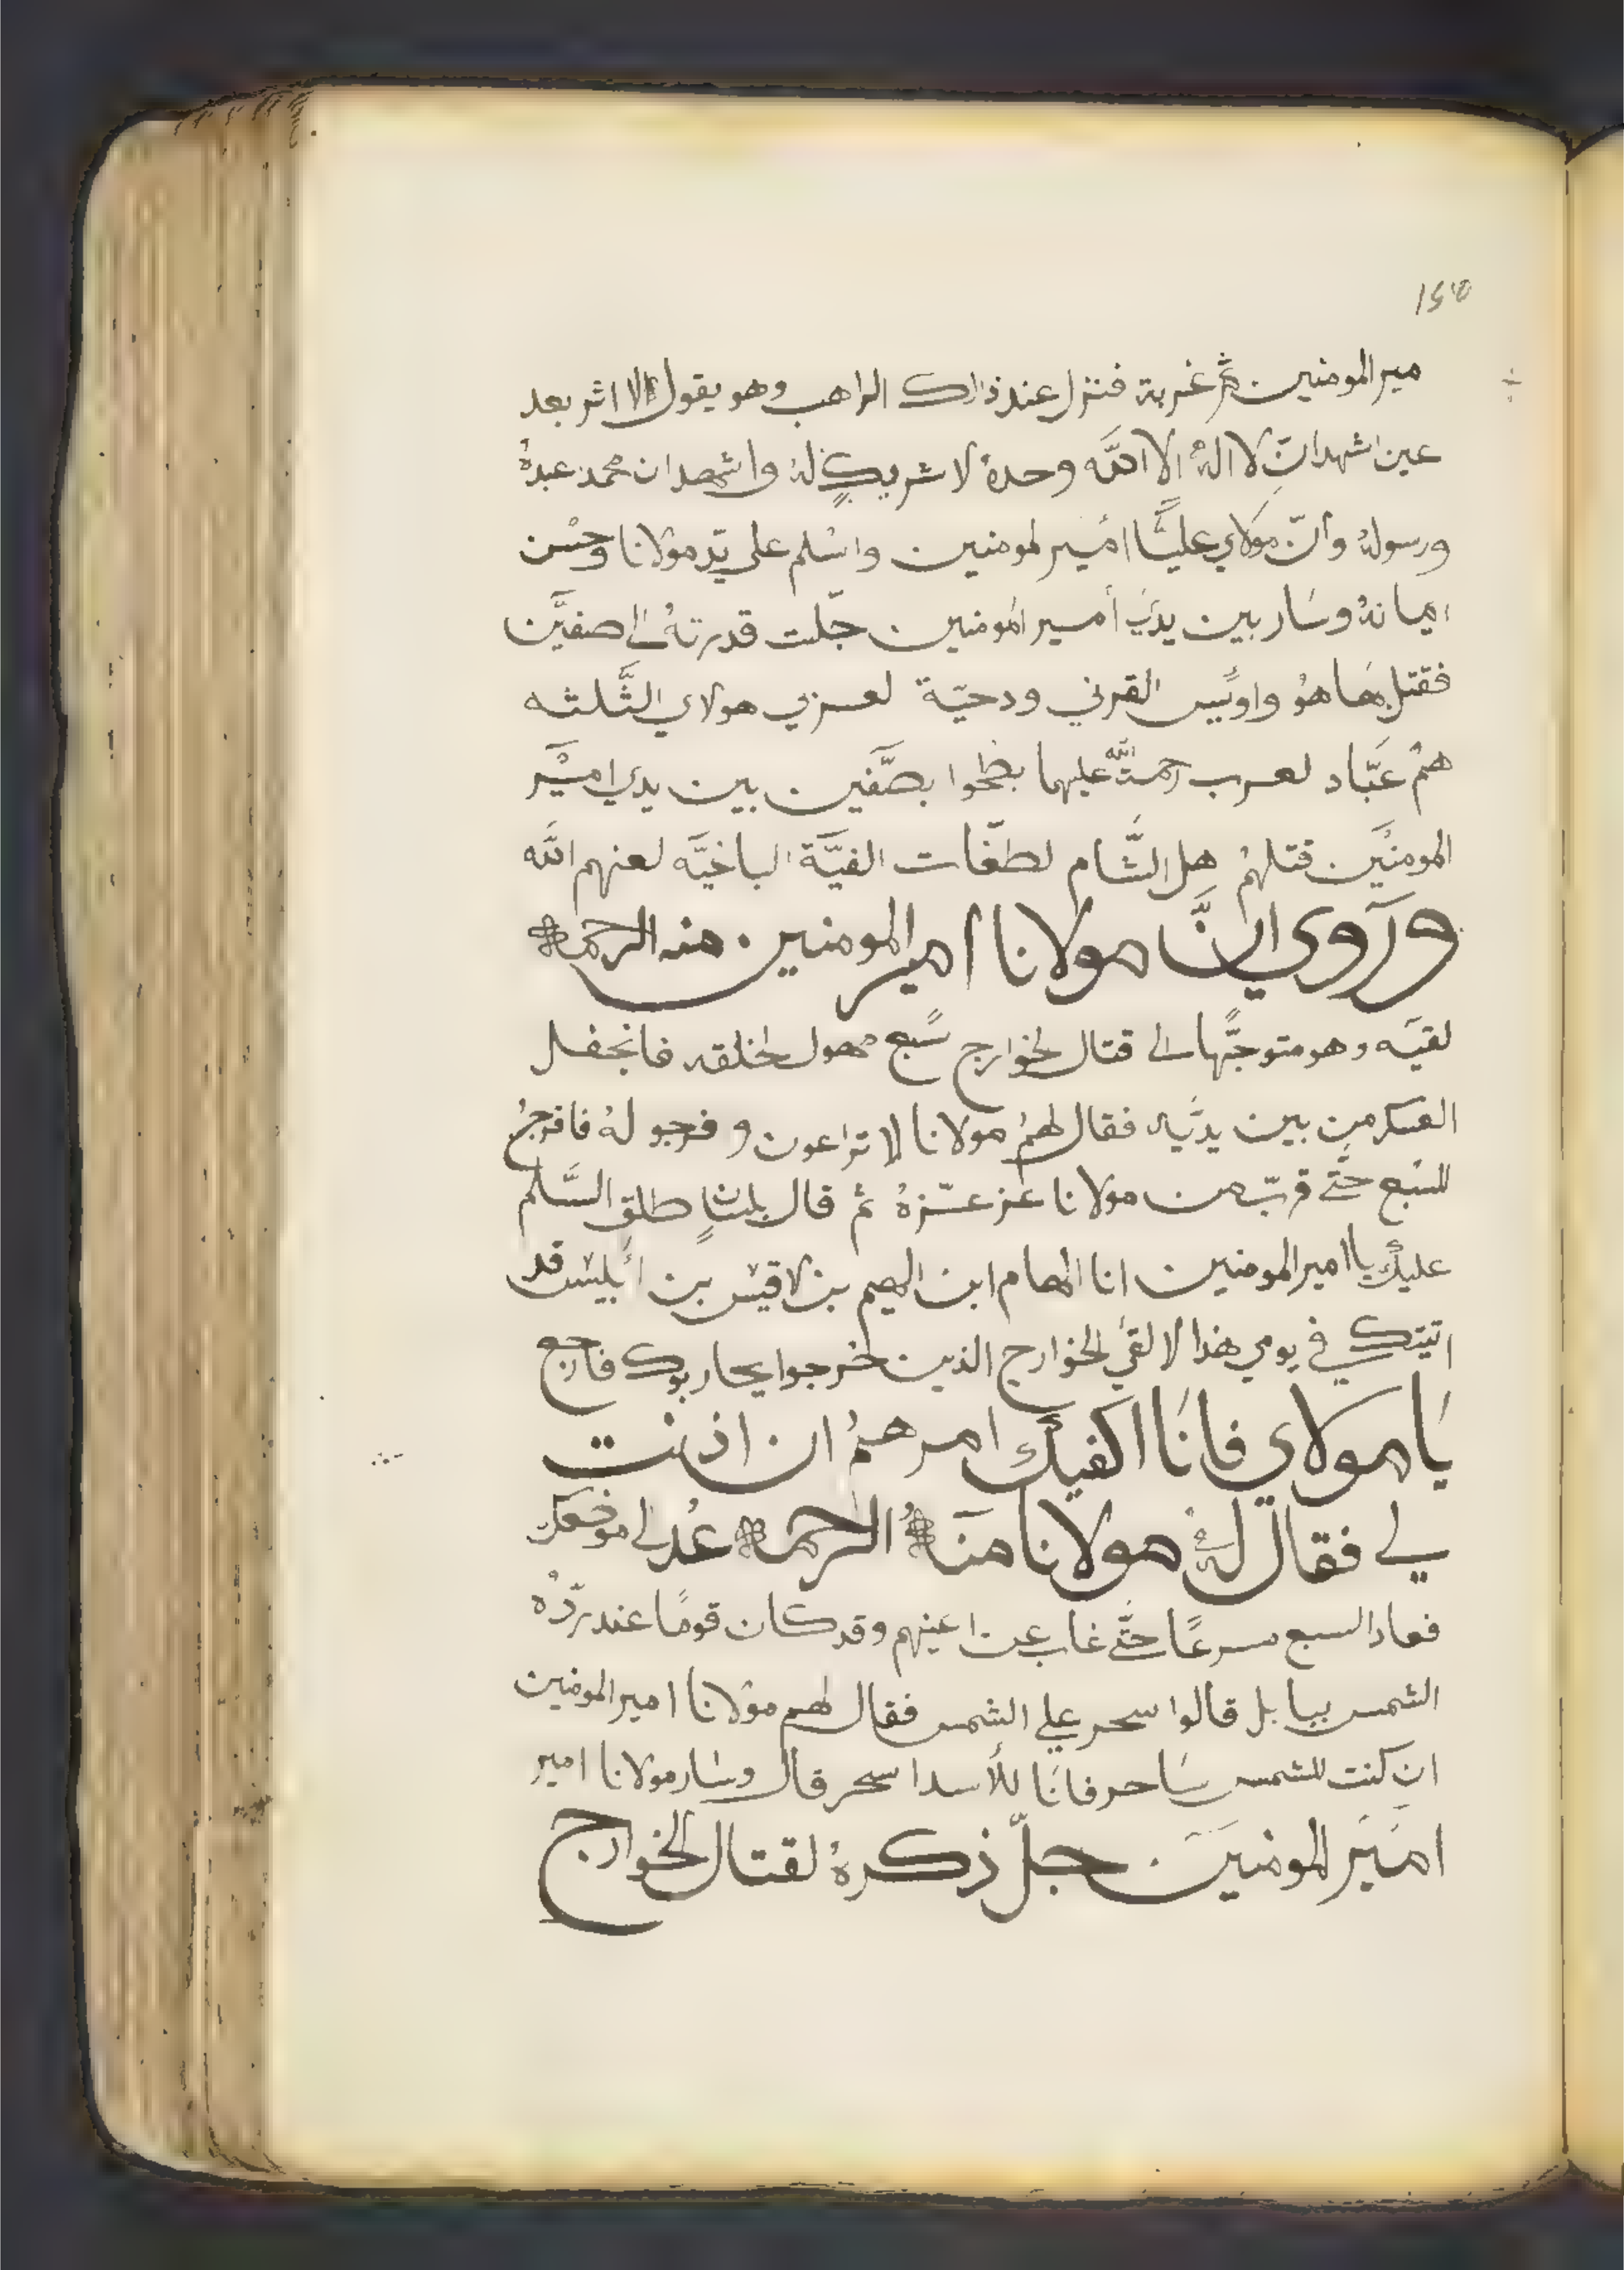 ١٤٥
مير المومنين ثم غربة فنزل عند ذالك الراهب وهو يقول لا اثر بعد
عين اشهد انّ لا الهُ الا اللّه وحدهُ لا شريكٍ لهُ واشهد ان محمد عبدهُ
ورسولهُ وأنّ مَولاي عليًّا أمير لمومنين واسْلم على يدّ مولانا وحسْن
ايمانهُ وسَار بين يدَي أمير المومنين جلّت قدرتهُ الى صفيَّن
فقتل بهَا هوُ واويَّس القرني ودحيّة لعرني هولاي الثَّلثه
همُ عَبّاد لعرب رحمة اللّه عليهما بطحوا بصّفين بين يدي اميَّر
المومنَين قتلهمُ هل الشَّام لطغّات الفيَّة الباغيَّه لعنهم اللّه
ورَوي انَّ مولانا امير المومنين منه الرحمه
لقيَه وهو متوجّهًا الى قتال لخوارج سَبع مهول لخلقه فانجفل
العسكر من بين يدَيه فقال لهمُ مولانا لا تراعون وفرجو لهُ فافرجُ
للسَبع حتَّي قربّ من مولانا عز عّزهُ ثم قال بلسانٍ طلق السَّلم
عليكَ يا امير المومنين انا الهام ابن الهيم بن لاقيس بن ابَليسْ قد
اتيتك في يومي هذا لا لقَي الخوارج الذين خرجوا يحاربوك فارجع
يَا مولاي فانَا اكفيكَ امرهمُ ان اذنت
لي فقال لهُ مولانا منَهُ الرحمه عُد لي موضعك
فعاد السبع مسرعًا حتَّي غاب عن اعينهم وقد كان قومًا عند ردّهُ
الشمس ببابل قالوا سحر علي الشمس فقال لهم مولانا امير المومنين
ان كنت للشمس سَاحر فانَا للأسد اسحر قال وسَار مولانا امير
امَير المومنَينَ جلّ ذكرهُ لقتال الخوارج